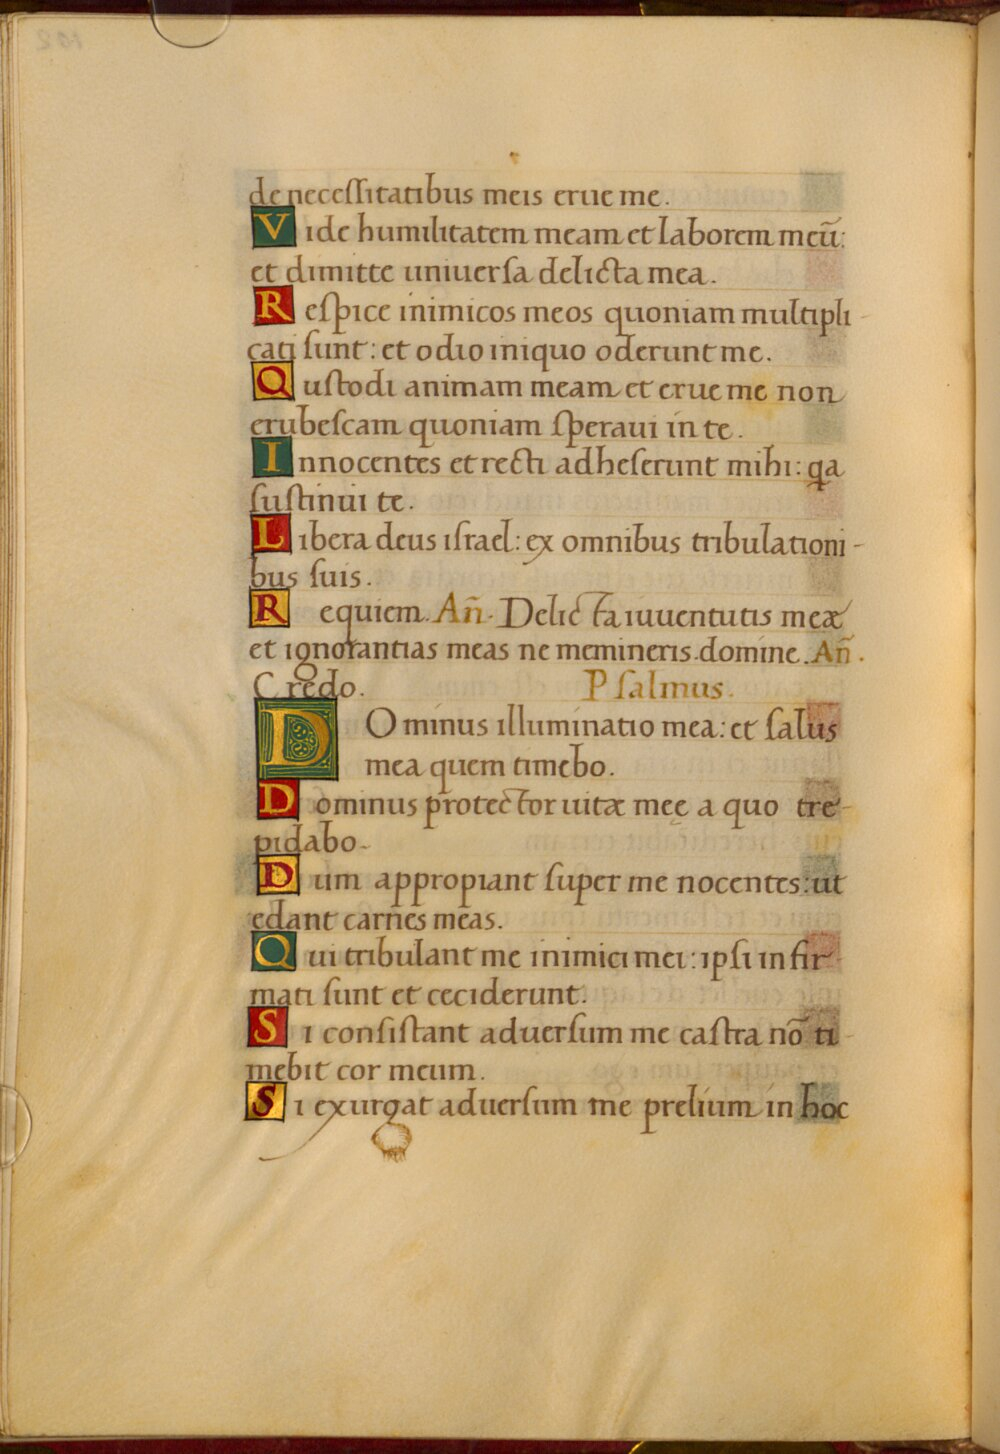 de necessitatibus meis erue me.
Vide humilitatem meam et laborem meū:
et dimitte uniuersa delicta mea.
Respice inimicos meos quoniam multipli-
cati sunt: et odio iniquo oderunt me.
Qustodi animam meam et erue me non
erubescam quoniam speraui in te.
Innocentes et recti adheserunt mihi: qa
sustinui te.
Libera deus israel: ex omnibus tribulationi-
bus suis.
Requiem. Añ. Delicta iuuentutis meæ
et ignorantias meas ne memineris.domine. Añ.
Credo. Psalmus.
DOminus illuminatio mea: et salus
mea quem timebo.
Dominus protector uitæ meę a quo tre-
pidabo.
Dum appropiant super me nocentes: ut
edant carnes meas.
Qui tribulant me inimici mei: ipsi infir-
mati sunt et ceciderunt.
Si consistant aduersum me castra nō ti-
mebit cor meum.
Si exurgat aduersum me prelium in hoc